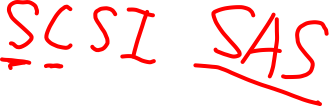 SCSI SAS